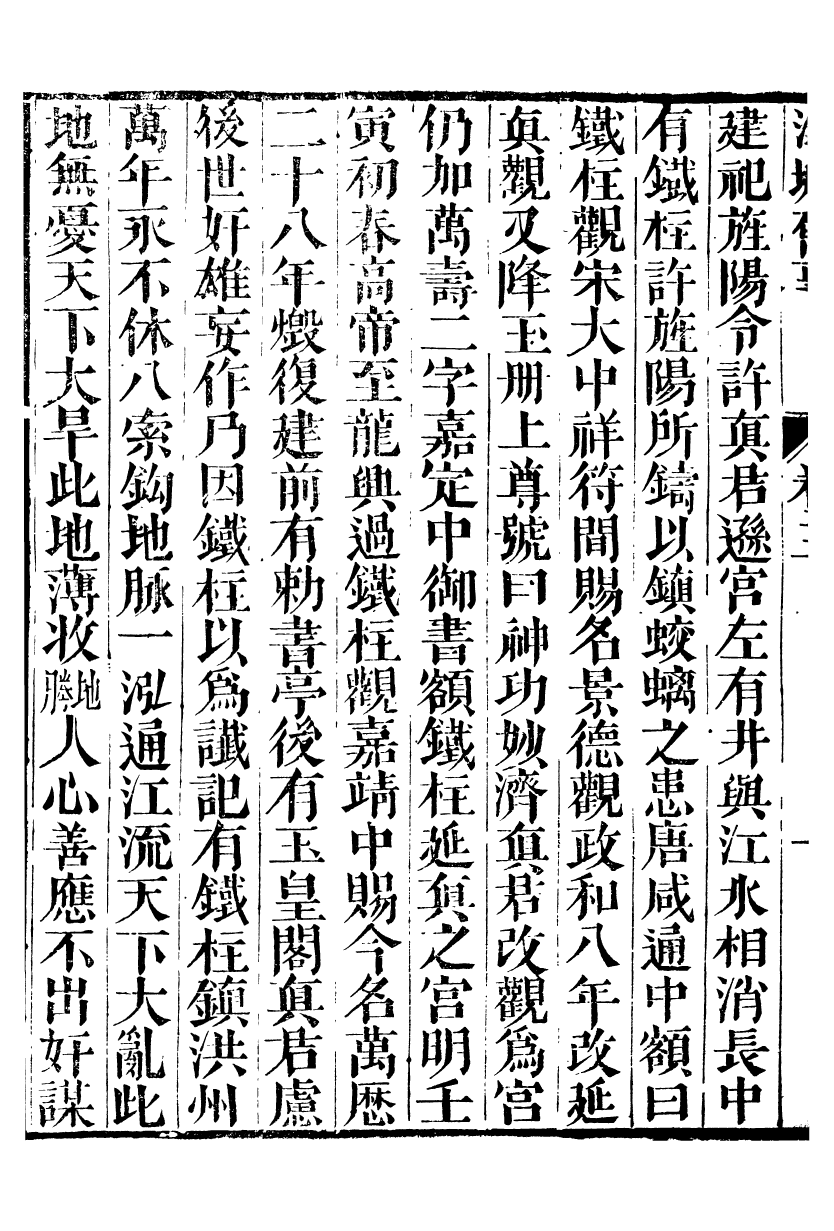 建祀旌陽令許真君遜宮左有井與江水相消長中
有鐵柱許旌陽所鑄以鎮蛟螭之患唐咸通中額曰
鐵柱觀宋大中祥符間賜名景德觀政和八年改延
真觀又降玉册上尊號曰神功妙濟真君改觀爲宮
仍加萬壽二字嘉定中御書額鐵柱延真之宮明壬
寅初春高帝至龍興過鐵柱觀嘉靖中賜今名萬厯
二十八年燬復建前有勅書亭後有玉皇閣真君慮
後世奸雄妄作乃因鐵柱以爲讖記有鐵柱鎮洪州
萬年永不休八索鈎地脈一泓通江流天下大亂此
地無憂天下大旱此地薄收地勝人心善應不出奸謀